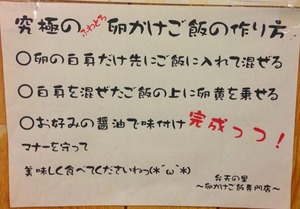 究極の ふわとろ 卵かけご飯の作り方
○卵の白身だけ先にご飯に入れて混ぜる
○白身を混ぜたご飯の上に卵黄を乗せる
○お好みの醤油で味付け 完成っっ!
マナーを守って
美味しく食べてくださいねっ(*´ω`*)
弁天の里
〜卵かけご飯専門店〜